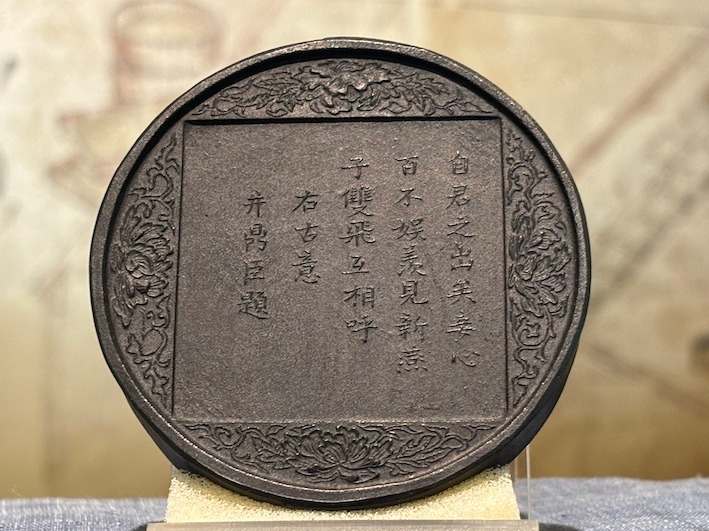 自君之出矣妾心
百不娱羡見新燕
子雙飛互相呼
右古意
并鼎臣題